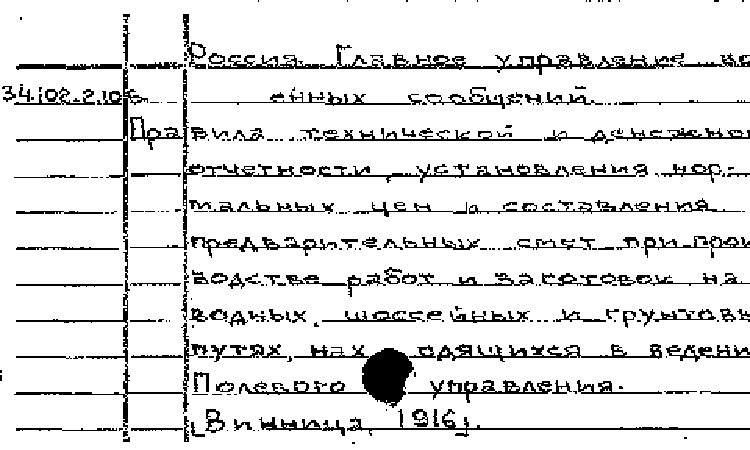 Россия. Главное управление во
34/02.2.106 енных сообщений.
Правила технической и денежно
отчетности, установления нор-
мальных цен и составления
предварительных смет при прои
водстве работ и заготовок на
водных, шоссейных и грунтовы
путях, находящихся в ведени
Полевого управления.
[Винница, 1916].